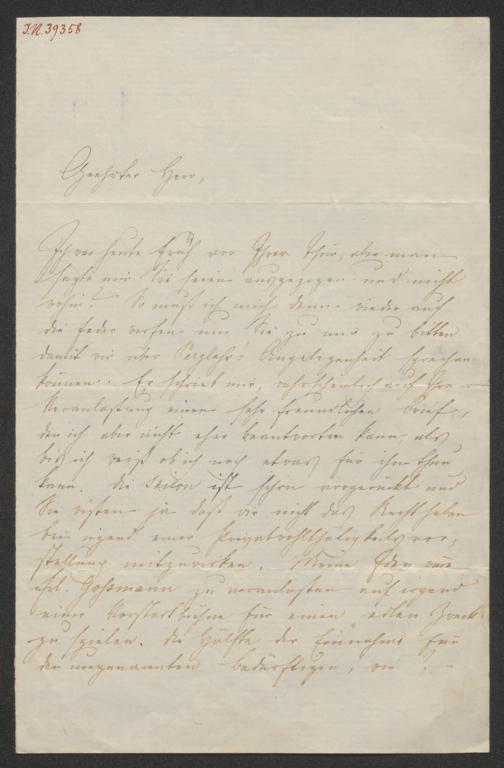 I.N. 39358
Geehrter Herr,
Ich war heute früh vor Ihrer Thür, aber man
sagte mir Sie seien ausgezogen und nicht
wohin? So muß ich mich denn wieder auf
die Feder werfen um Sie zu mir zu bitten
damit wir über Angelegenheit sprechen
können. Er schrieb mir, wahrscheinlich auf Ihre
Veranlassung einen sehr freundlichen Brief,
den ich aber nicht eher beantworten kann, als
bis ich weiß ob ich noch etwas für ihn thun
kann. Die Saison ist schon vorgerückt und
Sie wissen ja daß wir nicht das Recht haben
bei irgend einer Privatwohlthätigkeitsvor-
stellung mitzuwirken. Meine Idee wäre
Gossmann zu veranlassen auf irgend
einer Vorstadtbühne für einen edlen Zweck
zu spielen. Die Hälfte der Einnahme für
den ungenannten bedürftigen, wie ? –